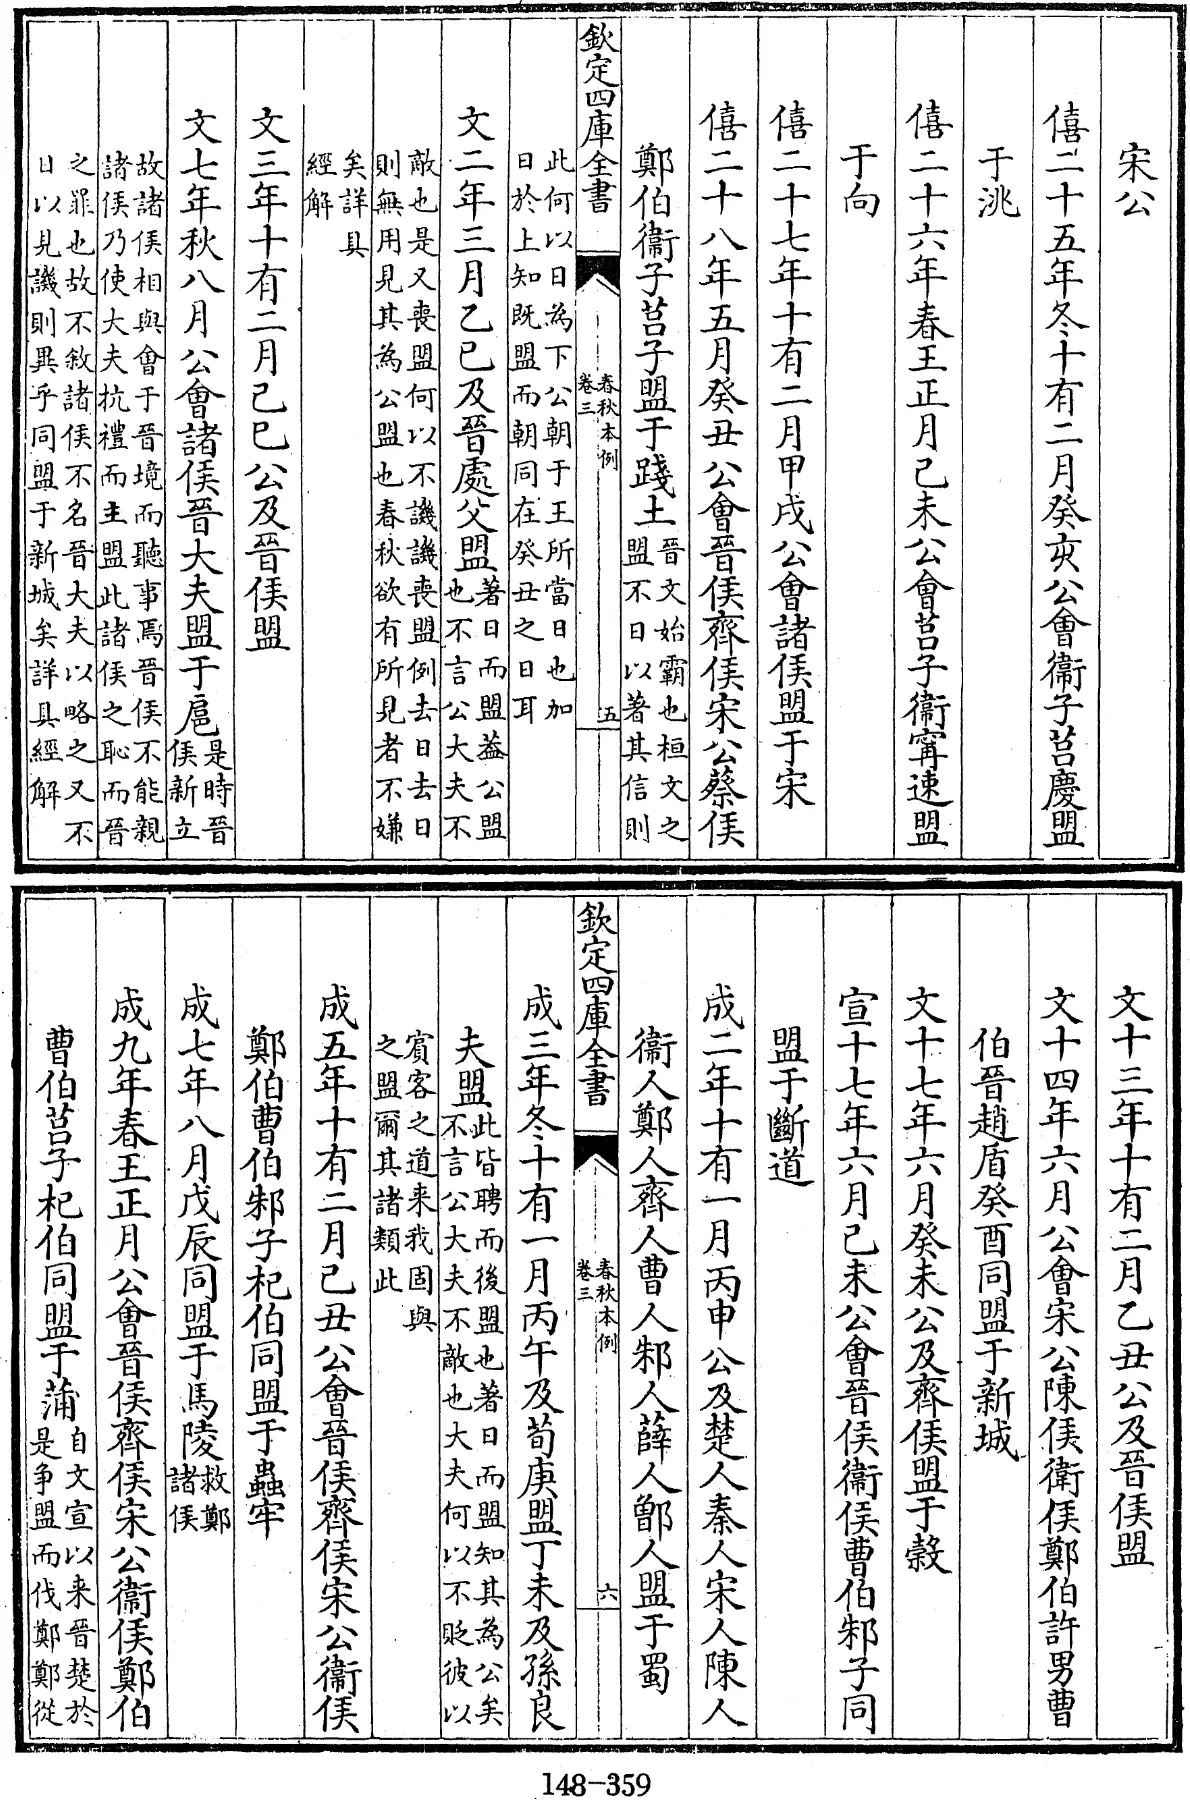 宋公
僖二十五年冬十有二月癸亥公會衞子莒慶盟
于洮
僖二十六年春王正月己未公會莒子衞甯速盟
于向
僖二十七年十有二月甲戌公會諸侯盟于宋
僖二十八年五月癸丑公會晉侯齊侯宋公蔡侯
鄭伯衞子莒子盟于踐土晉文始霸也桓文之
盟不日以著其信則
欽定四庫全書
春秋本例
卷三
五
此何以日為下公朝于王所當日也加
日於上知既盟而朝同在癸丑之日耳
文二年三月乙巳及晉處父盟著日而盟葢公盟
也不言公大夫不
敵也是又喪盟何以不譏譏喪盟例去日去日
則無用見其為公盟也春秋欲有所見者不嫌
矣詳具
經解
文三年十有二月己巳公及晉侯盟
文七年秋八月公會諸侯晉大夫盟于扈是時晉
侯新立
故諸侯相與會于晉境而聽事焉晉侯不能親
諸侯乃使大夫抗禮而主盟此諸侯之恥而晉
之罪也故不敘諸侯不名晉大夫以略之又不
日以見譏則異乎同盟于新城矣詳具經解
文十三年十有二月乙丑公及晉侯盟
文十四年六月公會宋公陳侯衛侯鄭伯許男曹
伯晉趙盾癸酉同盟于新城
文十七年六月癸未公及齊侯盟于穀
宣十七年六月己未公會晉侯衞侯曹伯邾子同
盟于斷道
成二年十有一月丙申公及楚人秦人宋人陳人
衞人鄭人齊人曹人邾人薛人鄫人盟于蜀
欽定四庫全書
春秋本例
卷三
六
成三年冬十有一月丙午及荀庚盟丁未及孫良
夫盟此皆聘而後盟也著日而盟知其為公矣
不言公大夫不敵也大夫何以不貶彼以
賓客之道来我固與
之盟爾其諸類此
成五年十有二月己丑公會晉侯齊侯宋公衞侯
鄭伯曹伯邾子杞伯同盟于蟲牢
成七年八月戊辰同盟于馬陵救鄭
諸侯
成九年春王正月公會晉侯齊侯宋公衞侯鄭伯
曹伯莒子杞伯同盟于蒲自文宣以来晉楚於
是争盟而伐鄭鄭從
148-359